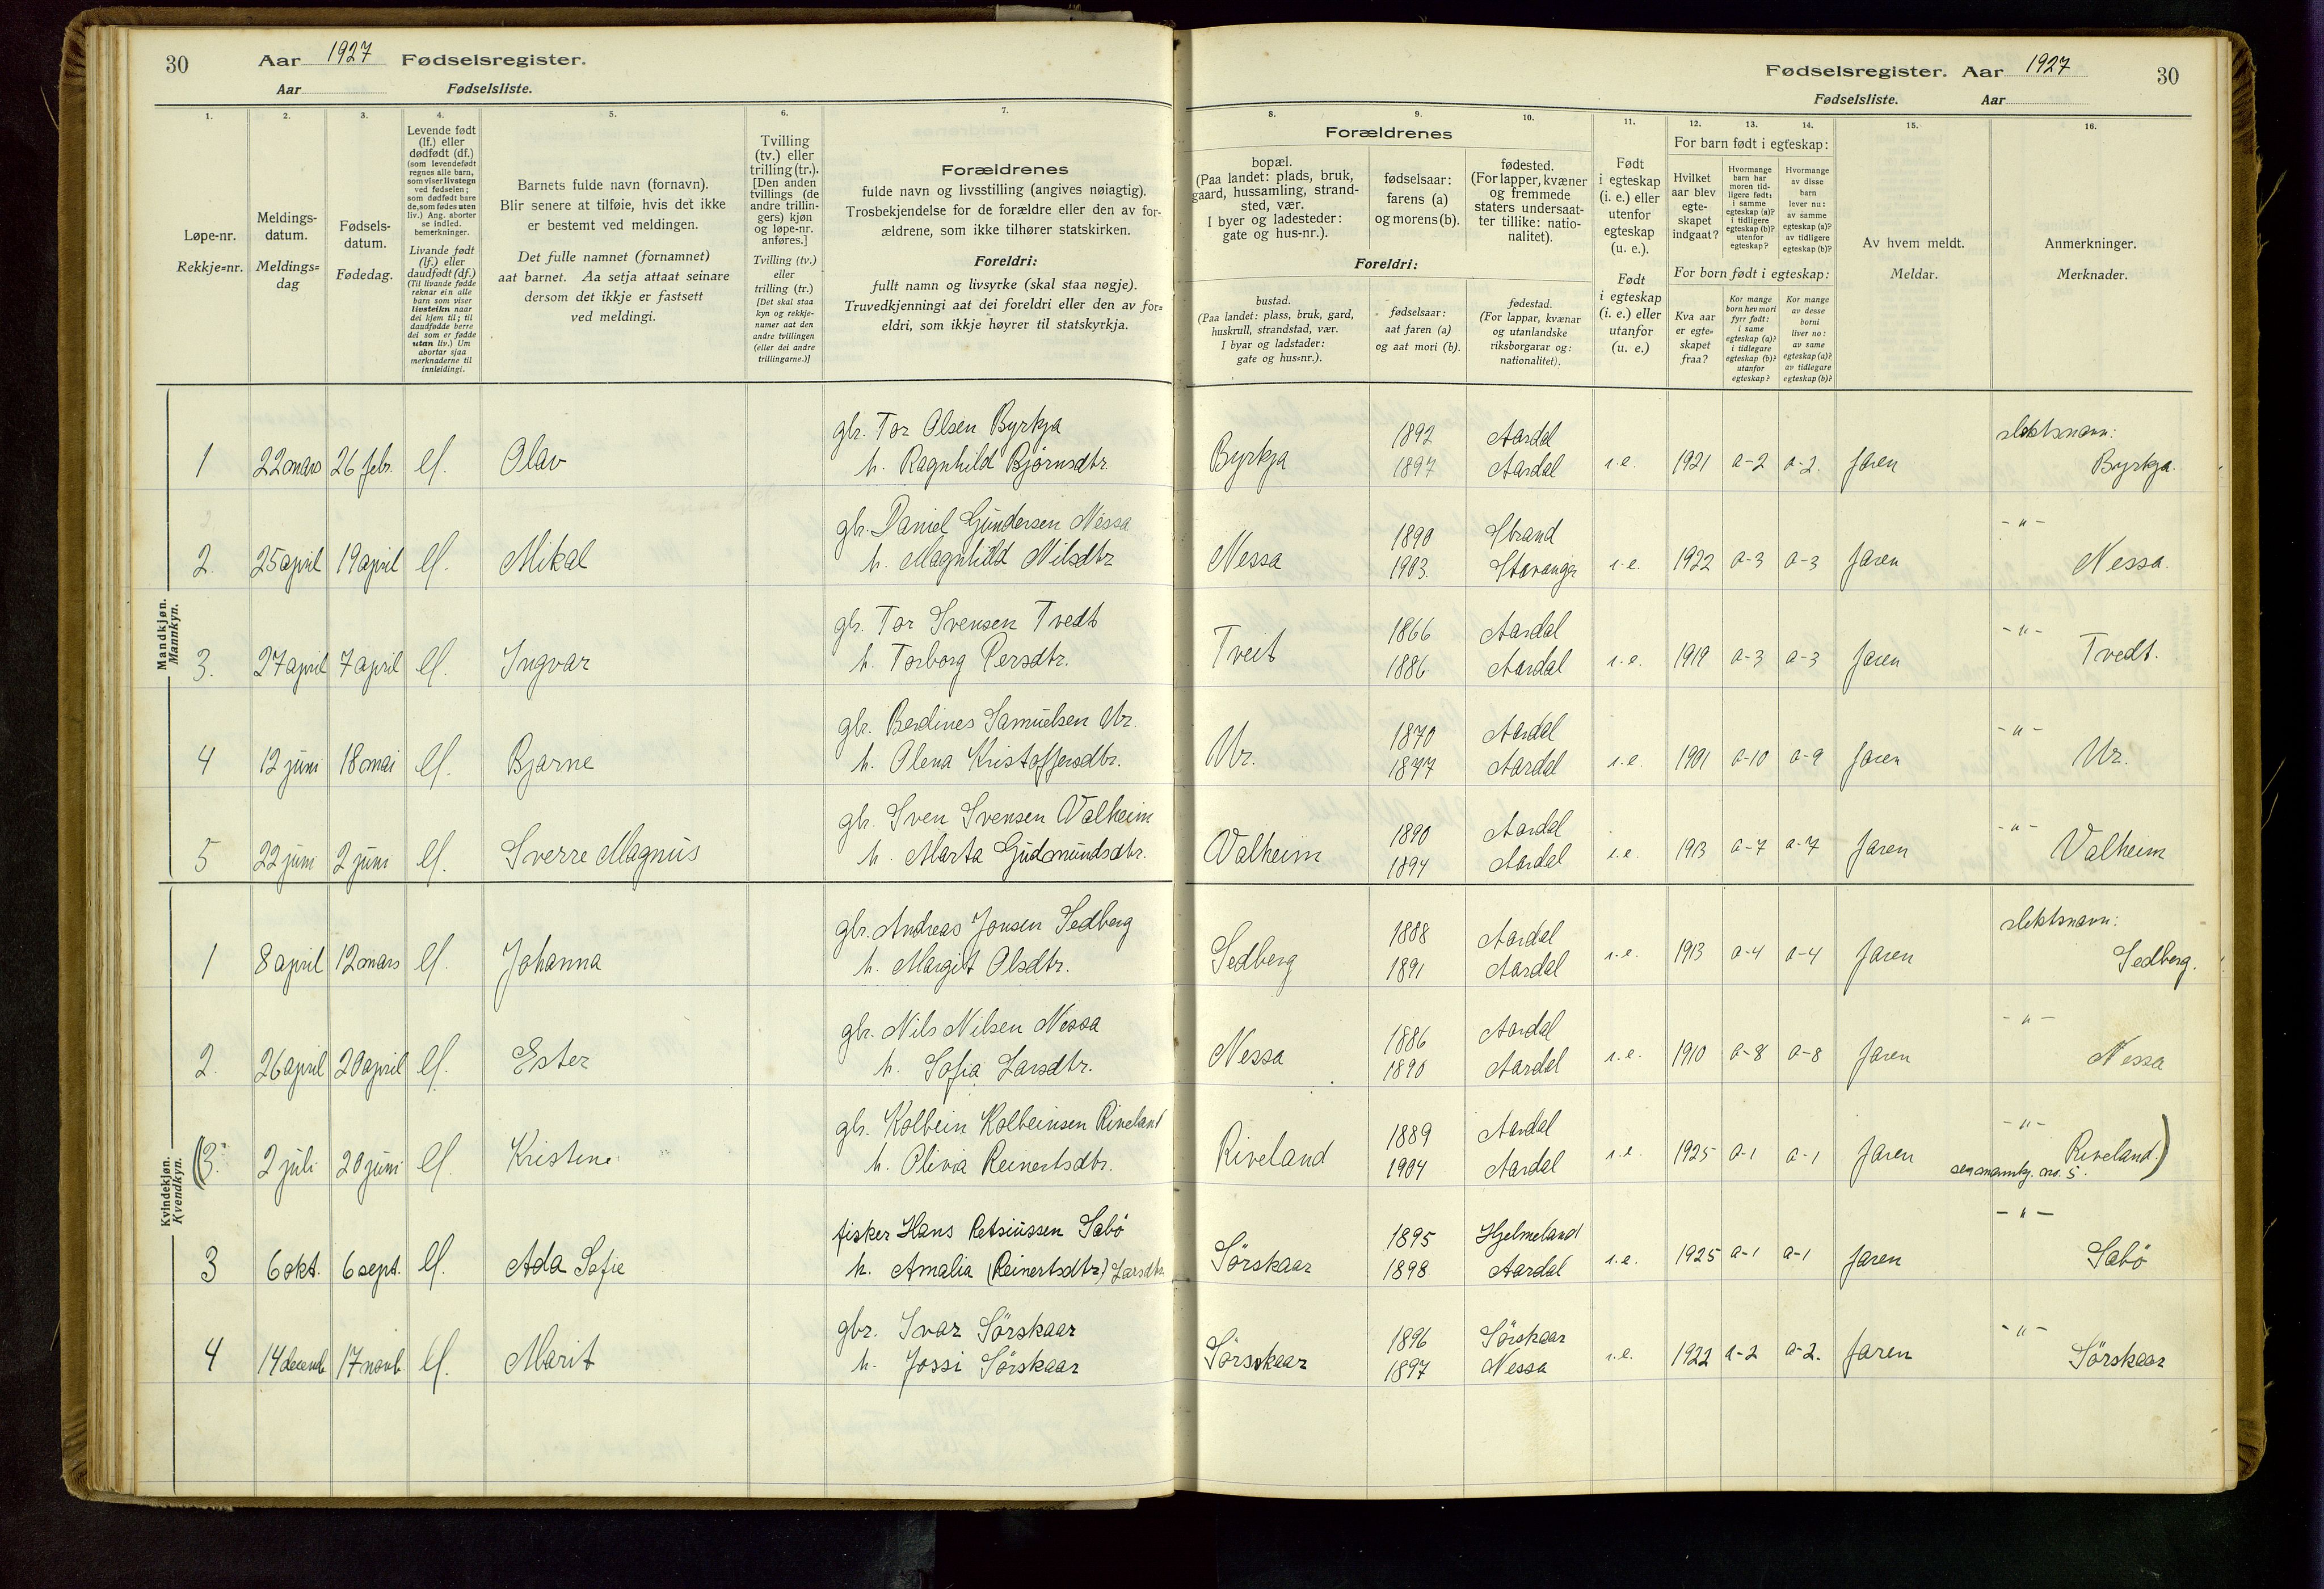 30 Aar 1927 Fødselsregister.
Aar Fødselsliste.
Fødselsregister. Aar 1927 30
Fødselsliste. Aar
1. 2. 3. 4. 5. 6. 7.
Løpe-nr.
Rekkje=nr.
Meldings-
datum.
Meldings=
dag
Fødsels-
datum.
Fødedag.
Levende født
(lf.) eller
dødfødt (df.)
(som levendefødt
regnes alle barn,
som viser livstegn
ved fødselen;
som dødfødt bare
de, som fødes uten
liv.) Ang. aborter
se indled.
bemerkninger.
Livande født
(lf.) eller
daudfødt (df.)
(Til livande fødde
reknar ein alle
barn som viser
livsteikn naar
dei kjem til; til
daudfødde berre
dei som er fødde
utan liv.) Um
abortar sjaa
merknaderne til
innleidingi.
Barnets fulde navn (fornavn).
Blir senere at tilføie, hvis det ikke
er bestemt ved meldingen.
Det fulle namnet (fornamnet)
aat barnet. Aa setja attaat seinare
dersom det ikkje er fastsett
ved meldingi.
Tvilling
(tv.) eller
trilling (tr.).
[Den anden
tvillings (de
andre trillin-
gers) kjøn
og løpe-nr.
anføres.]
Tvilling (tv.)
eller
trilling (tr.)
[Det skal staa
kyn og rekkje-
numer aat den
andre tvillingen
(eller dei andre
trillingarne.)]
Forældrenes
fulde navn og livsstilling (angives nøiagtig).
Trosbekjendelse for de forældre eller den av for-
ældrene, som ikke tilhører statskirken.
Foreldri:
fullt namn og livsyrke (skal staa nøgje).
Truvedkjenningi aat dei foreldri eller den av for=
eldri, som ikkje høyrer til statskyrkja.
8. 9. 10. 11. 12. 13. 14. 15. 16.
Forældrenes
bopæl.
(Paa landet: plads, bruk,
gaard, hussamling, strand-
sted, vær.
I byer og ladesteder:
gate og hus-nr.).
fødselsaar:
farens (a)
og morens (b).
fødested.
(For lapper, kvæner
og fremmede
staters undersaat-
ter tillike: natio-
nalitet).
Foreldri:
bustad.
(Paa landet: plass, bruk, gard,
huskrull, strandstad, vær.
I byar og ladstader:
gate og hus=nr.).
fødselsaar:
aat faren (a)
og aat mori (b).
fødestad.
(For lappar, kvænar
og utanlandske
riksborgarar og:
nationalitet).
Født
i egteskap
(i. e.) eller
utenfor
egteskap
(u. e.).
Født
i egteskap
(i. e.) eller
utanfor
(u. e.)
For barn født i egteskap:
Hvilket
aar blev
egte-
skapet
indgaat?
Hvormange
barn har
moren tid-
ligere født:
i samme
egteskap (a)?
i tidligere
egteskap (b)?
utenfor
egteskap?
Hvormange
av disse
barn
lever nu:
av samme
egteskap (a)?
av tidligere
egteskap (b)?
For born født i egteskap:
Kva aar
er egte=
skapet
fraa?
Kor mange
born hev mori
fyrr født:
i same
egteskap (a)?
i tidlegare
egteskap (b)?
utanfor
egteskap?
Kor mange
av desse
borni
liver no:
av same
egteskap (a)?
av tidlegare
egteskap (b)?
Av hvem meldt.
Meldar.
Anmerkninger.
Merknader.
Mandkjøn.
Mannkyn.
gbr. Tor Olsen Byrkja 1892 Aardal slektsnavn:
1 22 mars 26 febr. lf. Olav h. Ragnhild Bjørnsdtr. Byrkja 1897 Aardal i.e. 1921 a-2 a-2. faren Byrkja.
gbr. Daniel Gundersen Nessa 1890 Strand -"-
2. 25 april 19 april lf. Mikal h. Magnhild Nilsdtr Nessa 1903. Stavanger i.e. 1922 a-3 a-3 faren Nessa.
gbr. Tor Svensen Tvedt 1866 Aardal -"-
3. 27 april 7 april lf. Ingvar h. Torborg Persdtr. Tveit 1886 Aardal i.e. 1919 a-3 a-3 faren Tvedt.
gbr. Berdines Samuelsen Ur. 1870 Aardal -"-
4 12 juni 18 mai lf. Bjarne h. Olena Kristoffersdtr. Ur. 1877 Aardal i.e. 1901 a-10 a-9 faren Ur.
gbr. Sven Svensen Valheim 1890 Aardal -"-
5 22 juni 2 juni lf. Sverre Magnus h. Marta Gudmundsdtr. Valheim 1894 Aardal i.e. 1913 a-7 a-7 faren Valheim
Kvindekjøn.
Kvendkyn.
gbr. Andreas Jonsen Sedberg 1888 Aardal slektsnavn:
1 8 april 12 mars lf. Johanna h. Margit Olsdtr. Sedberg 1891 Aardal i.e. 1913 a-4 a-4 faren Sedberg.
gbr. Nils Nilsen Nessa 1886 Aardal -"-
2. 26 april 20 april lf. Ester h. Sofia Larsdtr. Nessa 1890 Aardal i.e. 1910 a-8 a-8 faren Nessa
gbr. Kolbein Kolbeinsen Riveland 1889 Aardal -"-
(3. 2 juli 20 juni lf. Kristine h. Olivia Reinertsdtr. Riveland 1904 Aardal i.e. 1925 a-1 a-1 faren Riveland.)
no. 5.
fisker Hans Sabö 1895 Hjelmeland -"-
3 6 okt. 6 sept. lf. Ada Sofie h. Amalia (Reinertsdtr) Larsdtr. Sörskaar 1898 Aardal i.e. 1925 a-1 a-1 faren Sabö
gbr. Ivar Sörskaar 1896 Sörskaar -"-
4 14 decemb 17 novb lf. Marit h. Jossi Sörskaar Sörskaar 1897 Nessa i.e. 1922 a-2 a-2. faren Sörskaar